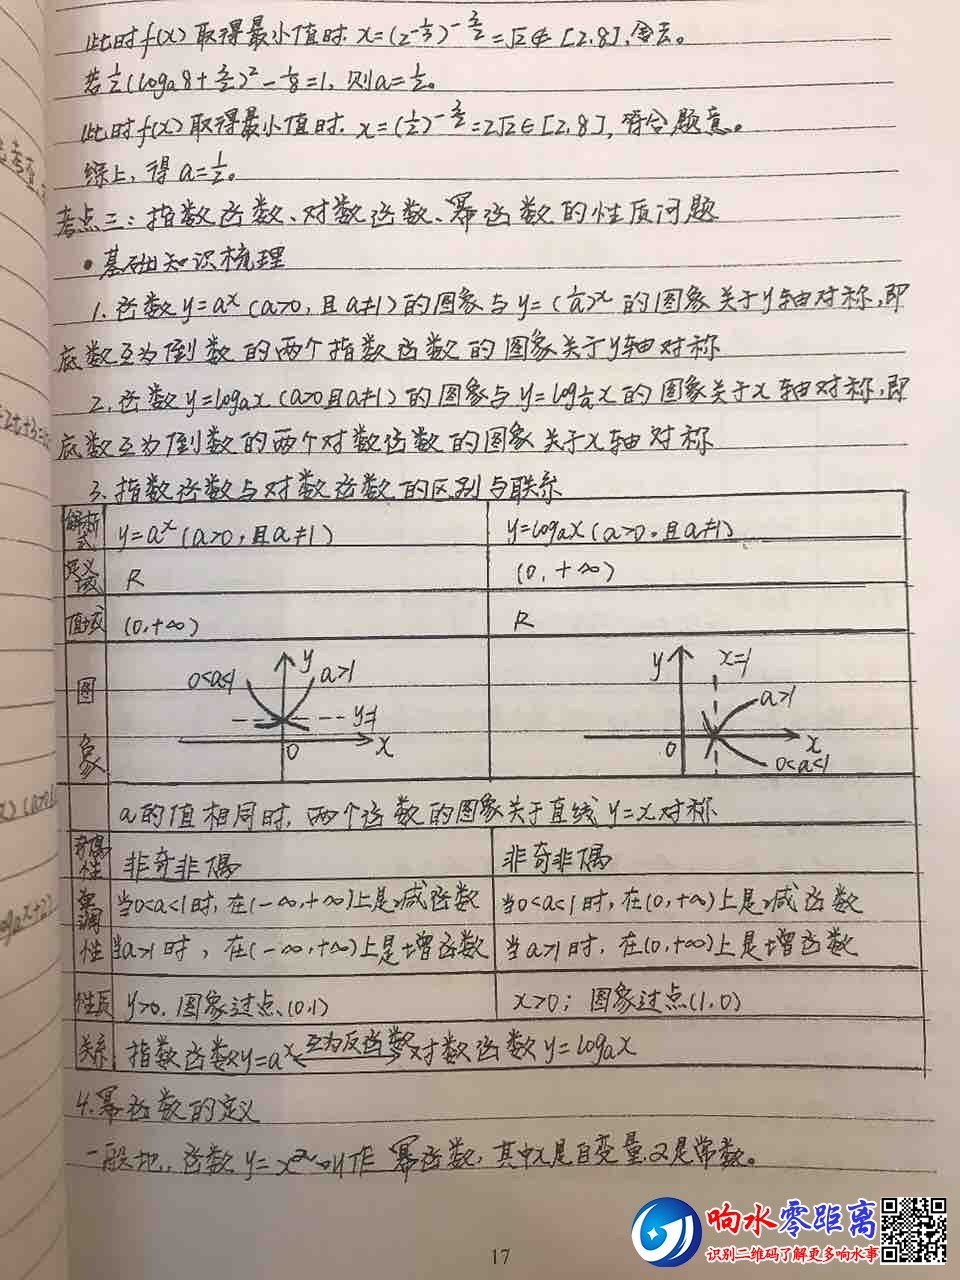 此时f(x)取得最小值时.x=(2^{-1/3})^{-3/2}=√2∉[2,8],舍去。
若½(logₐ8+3/2)²-1/8=1,则a=½。
此时f(x)取得最小值时.x=(½)^{-3/2}=2√2∈[2,8],符合题意。
综上,得a=½。
考点三:指数函数、对数函数、幂函数的性质问题
•基础知识梳理
1.函数y=aˣ(a>0,且a≠1)的图象与y=(1/a)ˣ的图象关于y轴对称,即
底数互为倒数的两个指数函数的图象关于y轴对称
2.函数y=logₐx(a>0且a≠1)的图象与y=log_{1/a}x的图象关于x轴对称,即
底数互为倒数的两个对数函数的图象关于x轴对称
3.指数函数与对数函数的区别与联系
解析式 y=aˣ(a>0,且a≠1) y=logₐx(a>0.且a≠1)
定义域 R (0,+∞)
值域 (0,+∞) R
图象
0<a<1 y a>1 y=1 0 x
y x=1 a>1 0 x 0<a<1
a的值相同时,两个函数的图象关于直线y=x对称
奇偶性 非奇非偶 非奇非偶
单调性 当0<a<1时,在(-∞,+∞)上是减函数 当0<a<1时,在(0,+∞)上是减函数
当a>1时,在(-∞,+∞)上是增函数 当a>1时,在(0,+∞)上是增函数
性质 y>0.图象过点(0,1) x>0;图象过点(1,0)
关系 指数函数y=aˣ 互为反函数 对数函数y=logₐx
4.幂函数的定义
一般地,函数y=x^α叫作幂函数,其中x是自变量,α是常数。
17
响水零距离
识别二维码了解更多响水事